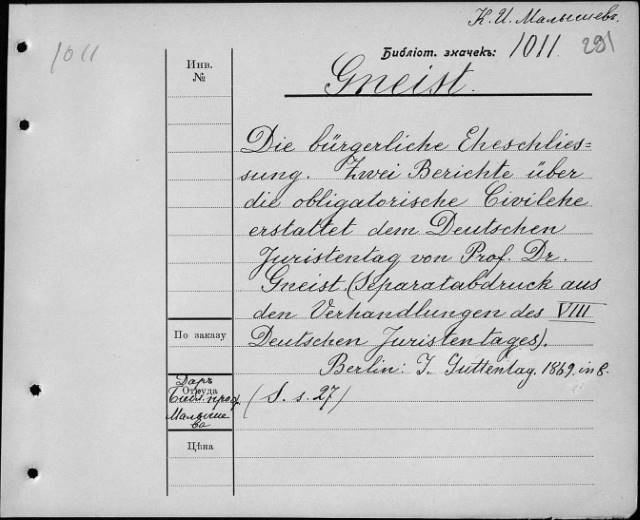 К. И. Малышевъ.
1011
Библіот. значекъ: 1011. 291
Инв.
№
Gneist.
Die bürgerliche Eheschlies=
sung. Zwei Berichte über
die obligatorische Civilehe
erstattet dem Deutschen
Juristentag von Prof. Dr.
Gneist. (Separatabdruck aus
den Verhandlungen des VIII
По заказу
Deutschen Juristentages).
Berlin: J. Guttentag. 1869. in 8.
Даръ
Откуда
Библ. проф.
Малыше
ва
(S. s. 27)
Цѣна